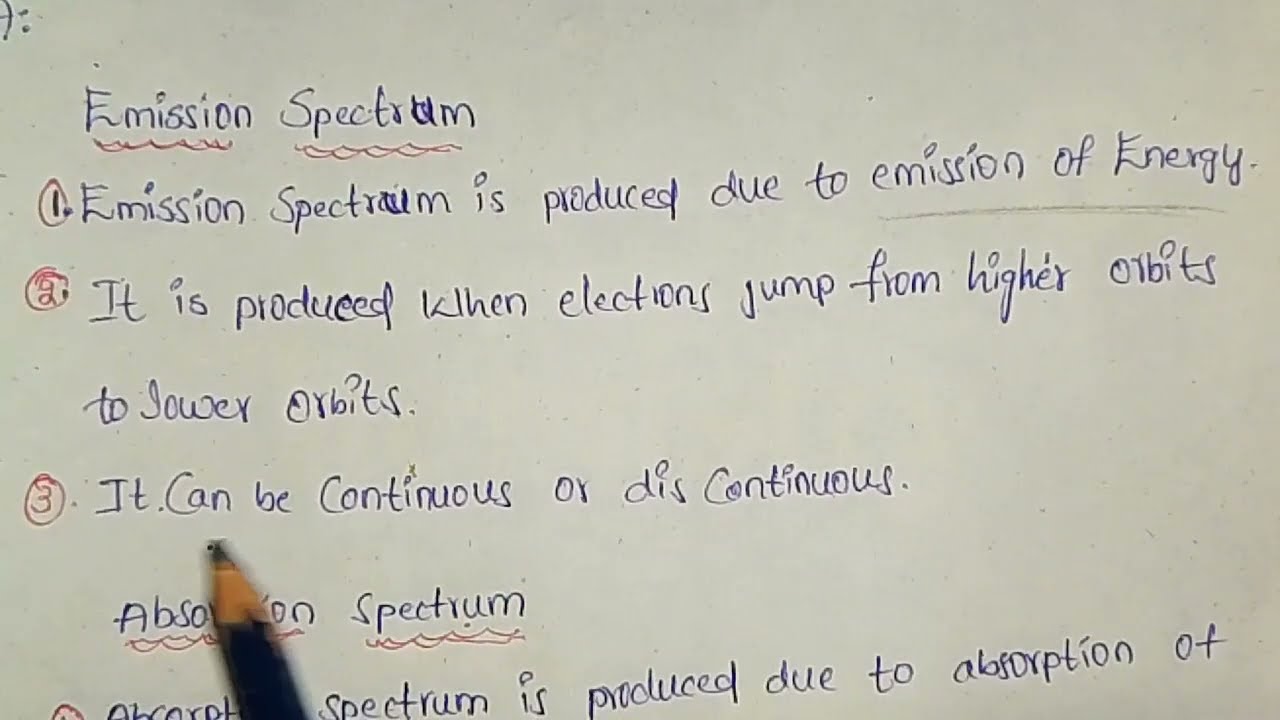 ):
Emission Spectrum
①. Emission Spectrum is produced due to emission of Energy.
②. It is produced When electrons jump from higher orbits
to lower orbits.
③. It. Can be Continuous or dis Continuous.
Spectrum
spectrum is produced due to absorption of